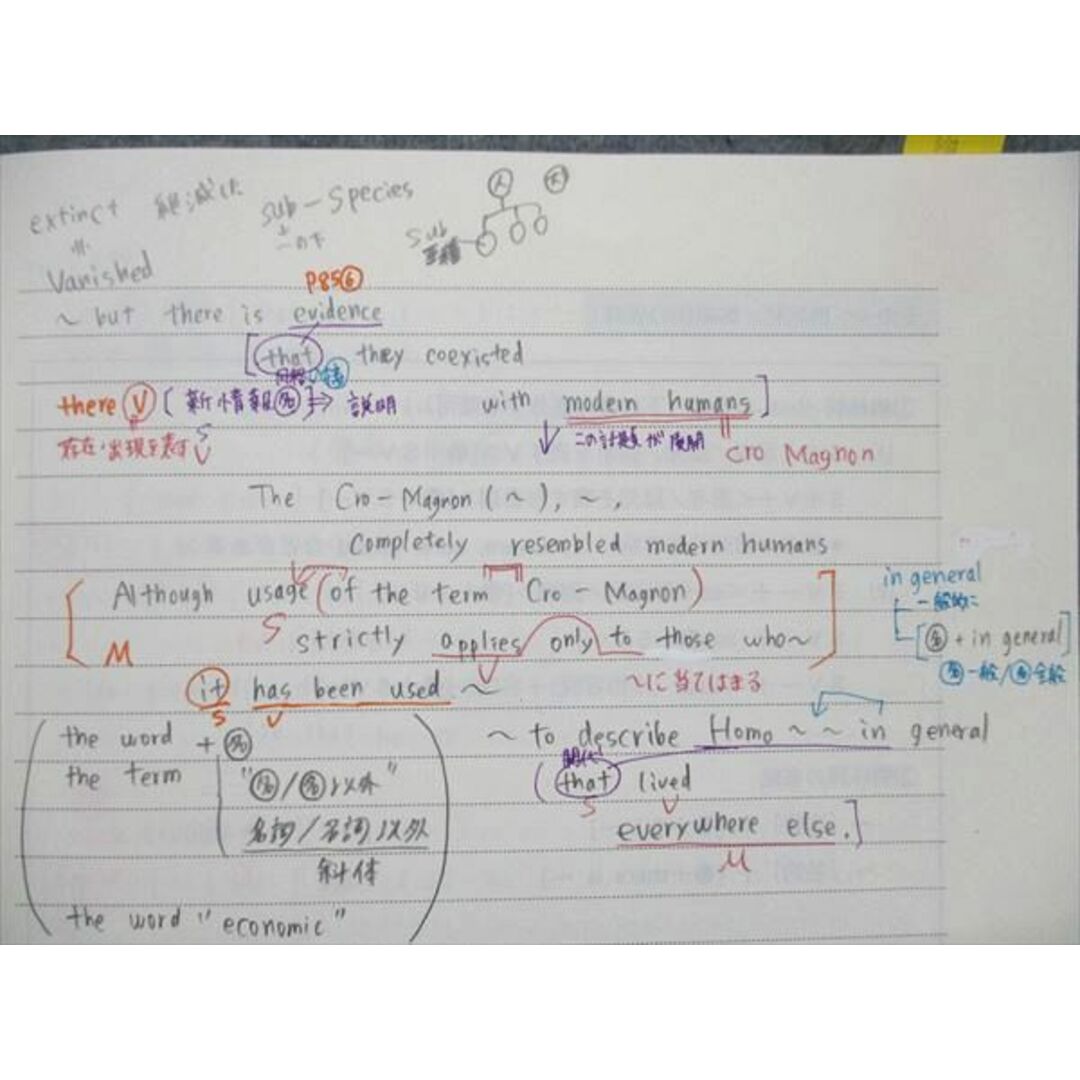 extinct 絶滅した sub-species
＝ 一の下 sub
Vanished
P85⑥
～ but there is evidence
[that they coexisted
同格の接
there Ⓥ [新情報㊔] ⇒ 説明 with modern humans]
存在・出現を表す V S この計測が展開 Cro Magnon
The Cro-Magnon (～), ～,
completely resembled modern humans
[Although usage (of the term Cro-Magnon) in general
S strictly applies only to those who～] 一般的に
M V ～に当てはまる [㊔ + in general]
㊔一般/㊔全般
it has been used ～
S V
(the word + ㊔ ～ to describe Homo ～～ in general
the term "㊔/㊔以外" 関代
(that lived
S V
名詞/名詞以外 everywhere else.]
斜体 M
the word "economic")